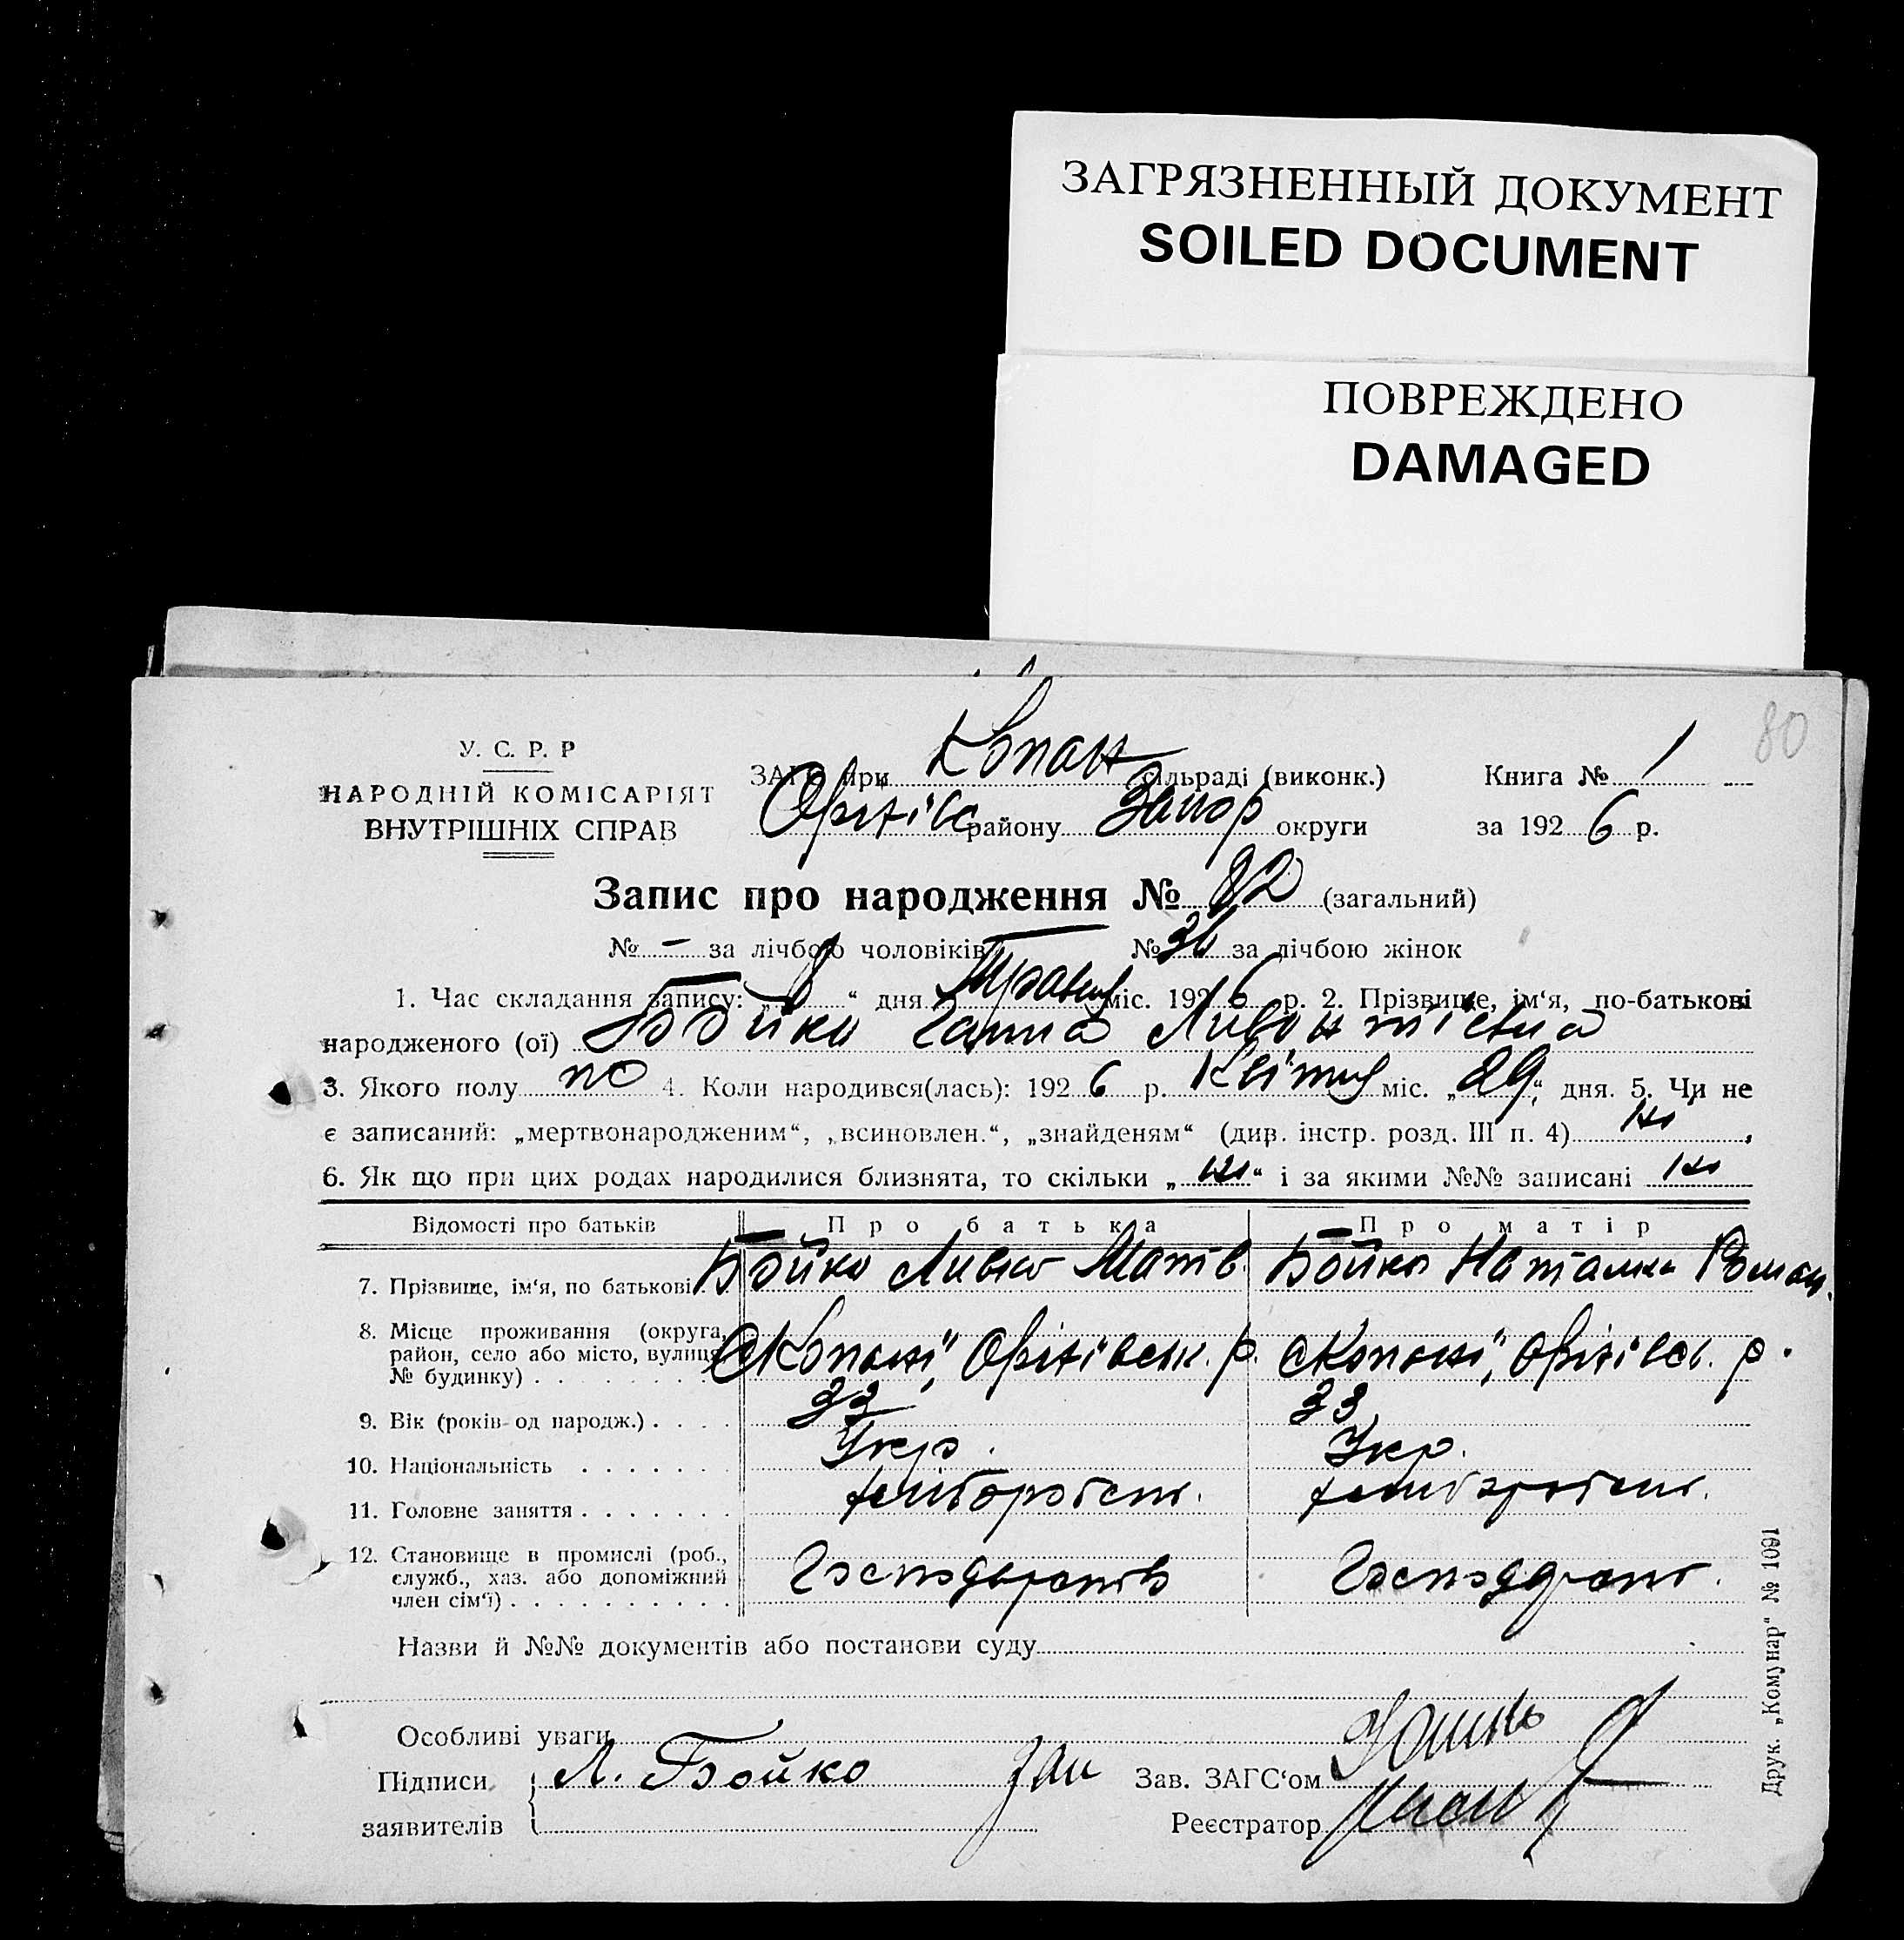 ЗАГРЯЗНЕННЫЙ ДОКУМЕНТ
SOILED DOCUMENT
ПОВРЕЖДЕНО
DAMAGED
80
У. С. Р. Р
НАРОДНІЙ КОМІСАРІЯТ
ВНУТРІШНІХ СПРАВ
ЗАГС при Копан сільраді (виконк.) Книга № 1
Оріхівс району Запор округи за 1926 р.
Запис про народження № 82 (загальний)
№ - за лічбою чоловіків № 36 за лічбою жінок
1. Час складання запису: „8“ дня Травня міс. 1926 р. 2. Прізвище, ім‘я, по-батькові
народженого (ої) Бойко Ганна
3. Якого полу 4. Коли народився(лась): 1926 р. Квітня міс. „29“ дня. 5. Чи не
є записаний: „мертвонародженим“, „всиновлен.“, „знайденям“ (див. інстр. розд. III п. 4) ні,
6. Як що при цих родах народилися близнята, то скільки „ні“ і за якими №№ записані ні
Відомості про батьків Про батька Про матір
7. Прізвище, ім‘я, по батькові Бойко Левко Матв. Бойко Наталка Роман.
8. Місце проживання (округа,
район, село або місто, вулиця
№ будинку) . . . . . . . с Копані, Оріхівськ. р. с Копані, Оріхівсь. р.
9. Вік (років од народж.) . . . . 33 33
10. Національність . . . . . . . Укр. Укр.
11. Головне заняття . . . . . . . хлібороб хлібороб
12. Становище в промислі (роб.,
служб., хаз. або допоміжний
член сім‘ї) . . . . . . . . . .
Назви й №№ документів або постанови суду
Особливі уваги
Підписи Л. Бойко Зав. ЗАГС‘ом
заявителів Реєстратор
Друк. „Комунар“ № 1091